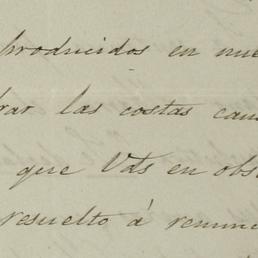 producidos en nue
rar las costas cau
que Vds en obs
resuelto á renun